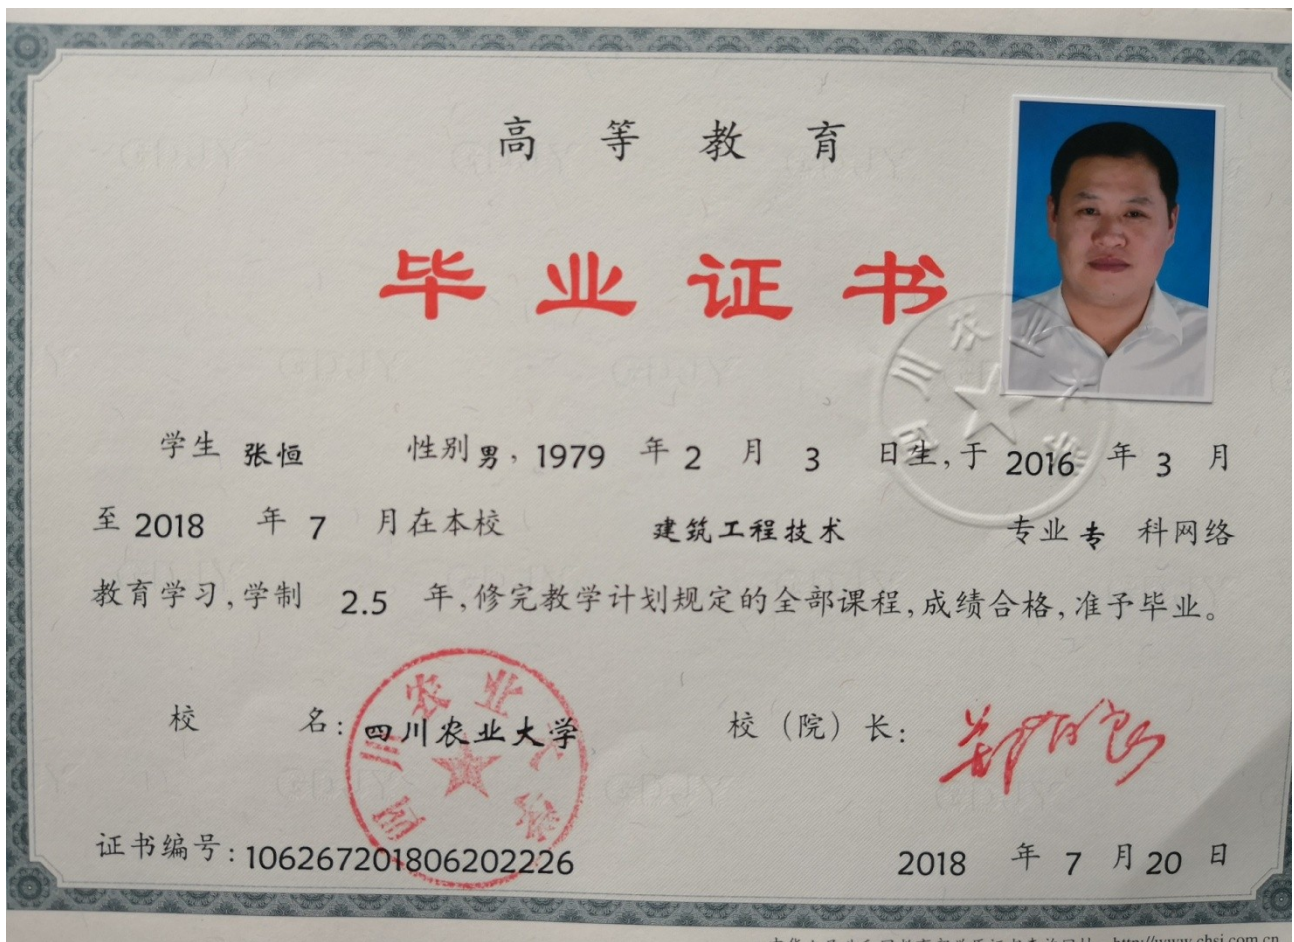 高等教育
毕业证书
学生 张恒 性别 男, 1979 年 2 月 3 日生,于 2016 年 3 月
至 2018 年 7 月在本校 建筑工程技术 专业 专 科网络
教育学习,学制 2.5 年,修完教学计划规定的全部课程,成绩合格,准予毕业。
校 名: 四川农业大学
校（院）长:
证书编号: 106267201806202226
2018 年 7 月 20 日
四川农业大学
四川农业大学
http://www.chsi.com.cn